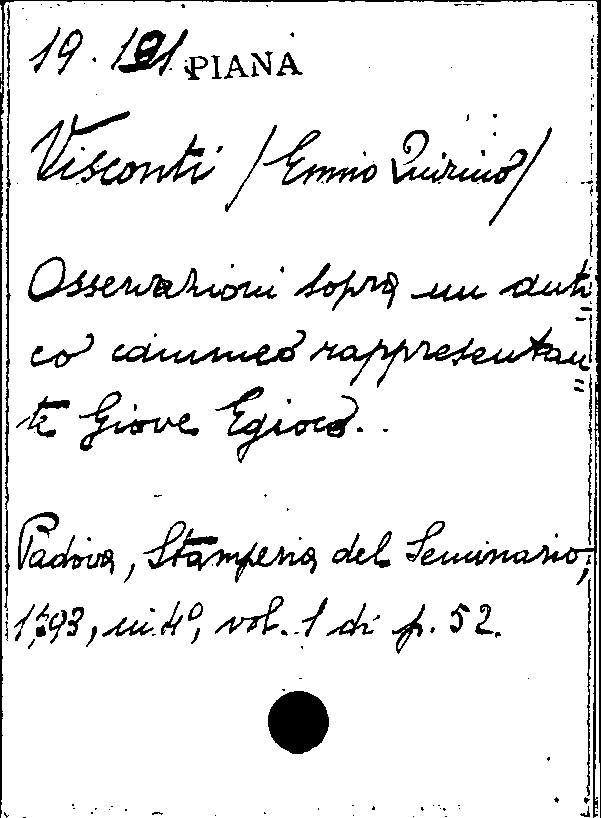 19. 191 PIANA
Visconti / Ennio Quirino /
Osservazioni sopra un anti=
co cammeo rappresentan=
te Giove Egioco..
Padova, Stamperia del Seminario,
1793, in 4º, vol. 1 di p. 52.